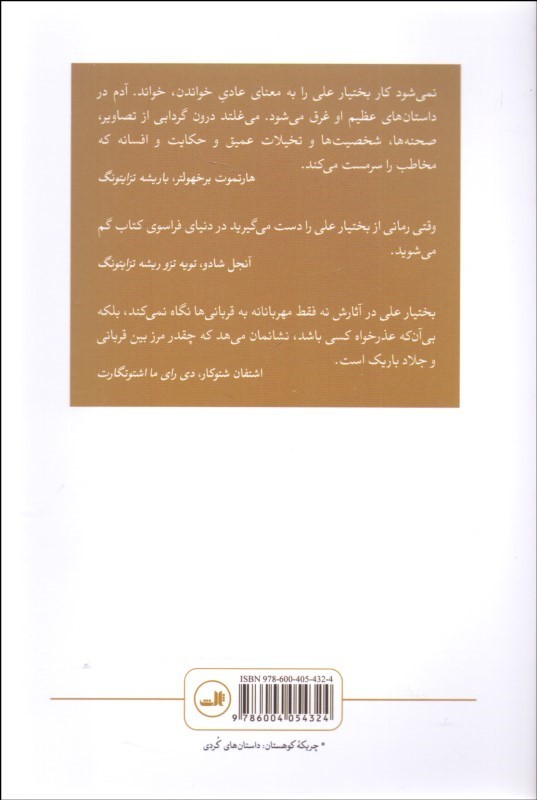 نمی‌شود کار بختیار علی را به معنای عادیِ خواندن، خواند. آدم در
داستان‌های عظیم او غرق می‌شود. می‌غلتد درون گردابی از تصاویر،
صحنه‌ها، شخصیت‌ها و تخیلات عمیق و حکایت و افسانه که
مخاطب را سرمست می‌کند.
هارتموت برخهولتر، باریشه تزایتونگ
وقتی رمانی از بختیار علی را دست می‌گیرید در دنیای فراسوی کتاب گم
می‌شوید.
آنجل شادو، نویه تزو ریشه تزایتونگ
بختیار علی در آثارش نه فقط مهربانانه به قربانی‌ها نگاه نمی‌کند، بلکه
بی‌آن‌که عذرخواه کسی باشد، نشانمان می‌هد که چقدر مرز بین قربانی
و جلاد باریک است.
اشتفان شتوکار، دی رای ما اشتوتگارت
ISBN 978-600-405-432-4
9 786004 054324
ثالث
* چریکهٔ کوهستان: داستان‌های کُردی